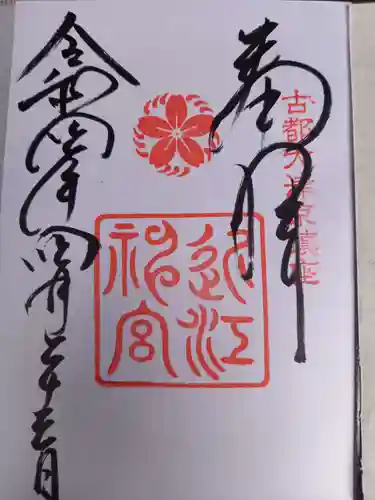 古都大津京鎮座
奉拝
近江
神宮
令和四年四月二十三日